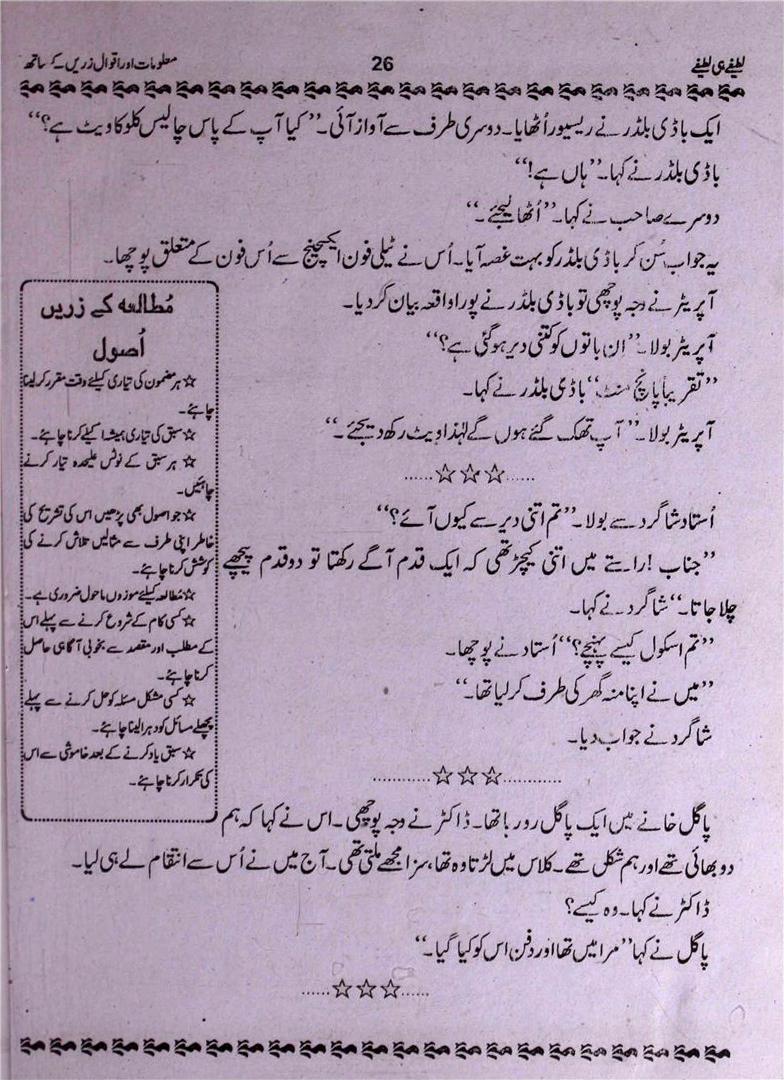 لطیفے ہی لطیفے
26
معلومات اور اقوال زریں کے ساتھ
ایک باڈی بلڈر نے ریسیور اُٹھایا۔ دوسری طرف سے آواز آئی۔ ’’کیا آپ کے پاس چالیس کلو کا ویٹ ہے؟‘‘
باڈی بلڈر نے کہا۔ ’’ہاں ہے!‘‘
دوسرے صاحب نے کہا۔ ’’اُٹھا لیجئے۔‘‘
یہ جواب سُن کر باڈی بلڈر کو بہت غصہ آیا۔ اُس نے ٹیلی فون ایکسچینج سے اُس فون کے متعلق پوچھا۔
آپریٹر نے وجہ پوچھی تو باڈی بلڈر نے پورا واقعہ بیان کر دیا۔
آپریٹر بولا۔ ’’ان باتوں کو کتنی دیر ہو گئی ہے؟‘‘
’’تقریباً پانچ منٹ‘‘ باڈی بلڈر نے کہا۔
آپریٹر بولا۔ ’’آپ تھک گئے ہوں گے لہٰذا ویٹ رکھ دیجئے۔‘‘
......☆☆☆......
اُستاد شاگرد سے بولا۔ ’’تم اتنی دیر سے کیوں آئے؟‘‘
’’جناب! راستے میں اتنی کیچڑ تھی کہ ایک قدم آگے رکھتا تو دو قدم پیچھے
چلا جاتا۔‘‘ شاگرد نے کہا۔
’’تم اسکول کیسے پہنچے؟‘‘ اُستاد نے پوچھا۔
’’میں نے اپنا منہ گھر کی طرف کر لیا تھا۔‘‘
شاگرد نے جواب دیا۔
...........☆☆☆...........
مُطالعہ کے زریں
اُصول
☆ ہر مضمون کی تیاری کیلئے وقت مقرر کر لینا
چاہئے۔
☆ سبق کی تیاری ہمیشہ اکیلے کرنا چاہئے۔
☆ ہر سبق کے نوٹس علیحدہ تیار کرنے
چاہئیں۔
☆ جو اصول بھی پڑھیں اس کی تشریح کی
خاطر اپنی طرف سے مثالیں تلاش کرنے کی
کوشش کرنا چاہئے۔
☆ مُطالعہ کیلئے موزوں ماحول ضروری ہے۔
☆ کسی کام کے شروع کرنے سے پہلے اس
کے مطلب اور مقصد سے بخوبی آگاہی حاصل
کرنا چاہئے۔
☆ کسی مشکل مسئلہ کو حل کرنے سے پہلے
پچھلے مسائل کو دہرا لینا چاہئے۔
☆ سبق یاد کرنے کے بعد خاموشی سے اس
کی تکرار کرنا چاہئے۔
پاگل خانے میں ایک پاگل رو رہا تھا۔ ڈاکٹر نے وجہ پوچھی۔ اس نے کہا کہ ہم
دو بھائی تھے اور ہم شکل تھے۔ کلاس میں لڑتا وہ تھا، سزا مجھے ملتی تھی۔ آج میں نے اُس سے انتقام لے ہی لیا۔
ڈاکٹر نے کہا۔ وہ کیسے؟
پاگل نے کہا ’’مرا میں تھا اور دفن اس کو کیا گیا۔‘‘
......☆☆☆......